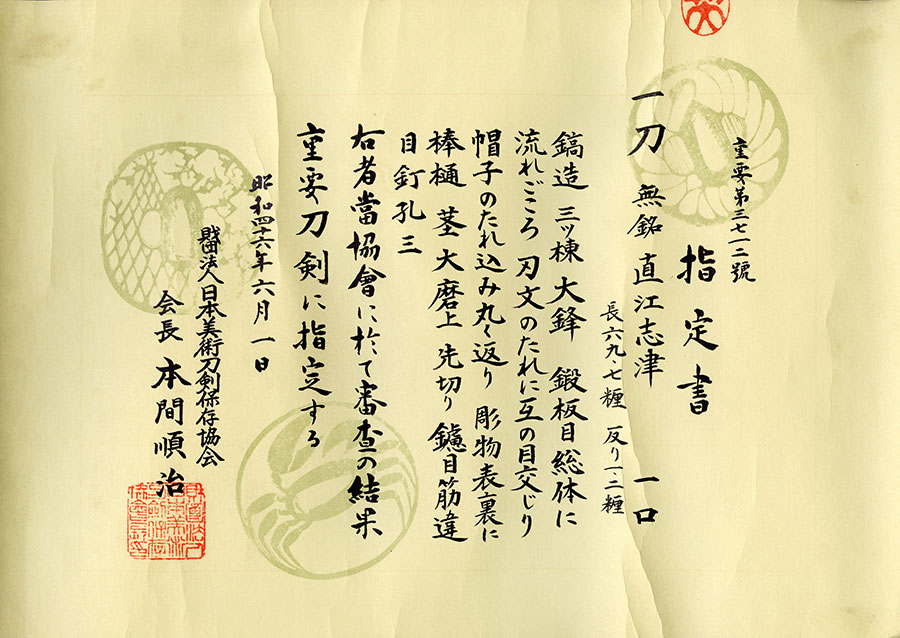 重要第三七一二號
指定書
一刀 無銘 直江志津 一口
長六九・七糎 反り一・二糎
鎬造 三ツ棟 大鋒 鍛板目総体に
流れごころ 刃文のたれに互の目交じり
帽子のたれ込み丸く返り 彫物表裏に
棒樋 茎大磨上 先切り 鑢目筋違
目釘孔三
右者當協會に於て審査の結果
重要刀剣に指定する
昭和四十六年六月一日
財団法人日本美術刀剣保存協会
会長 本間順治